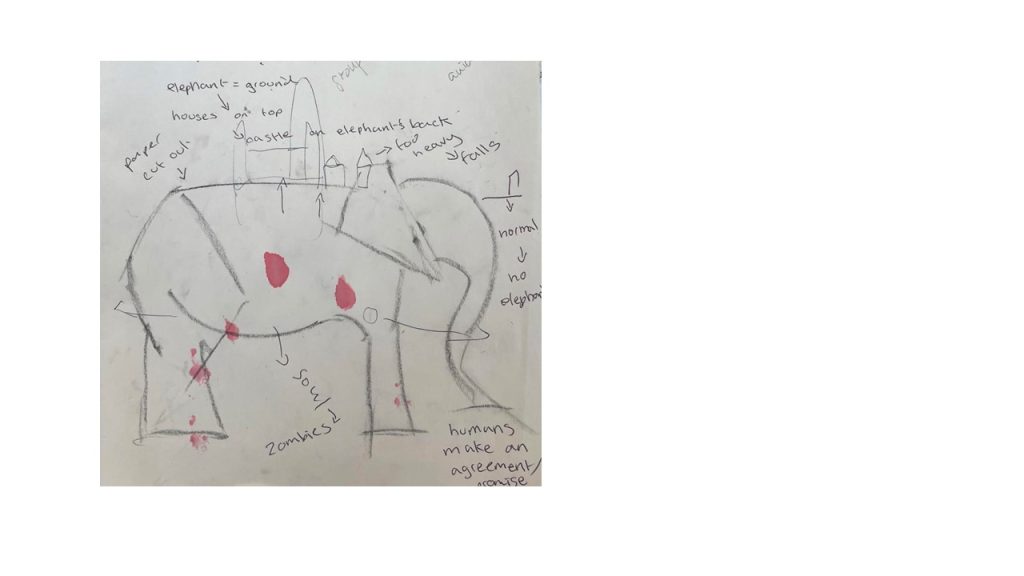 elephant = ground
group
houses on top
castle on elephant's back
→ too
heavy
↘ falls
paper
cut out
normal
no
zombies
humans
make an
agreement/
promise